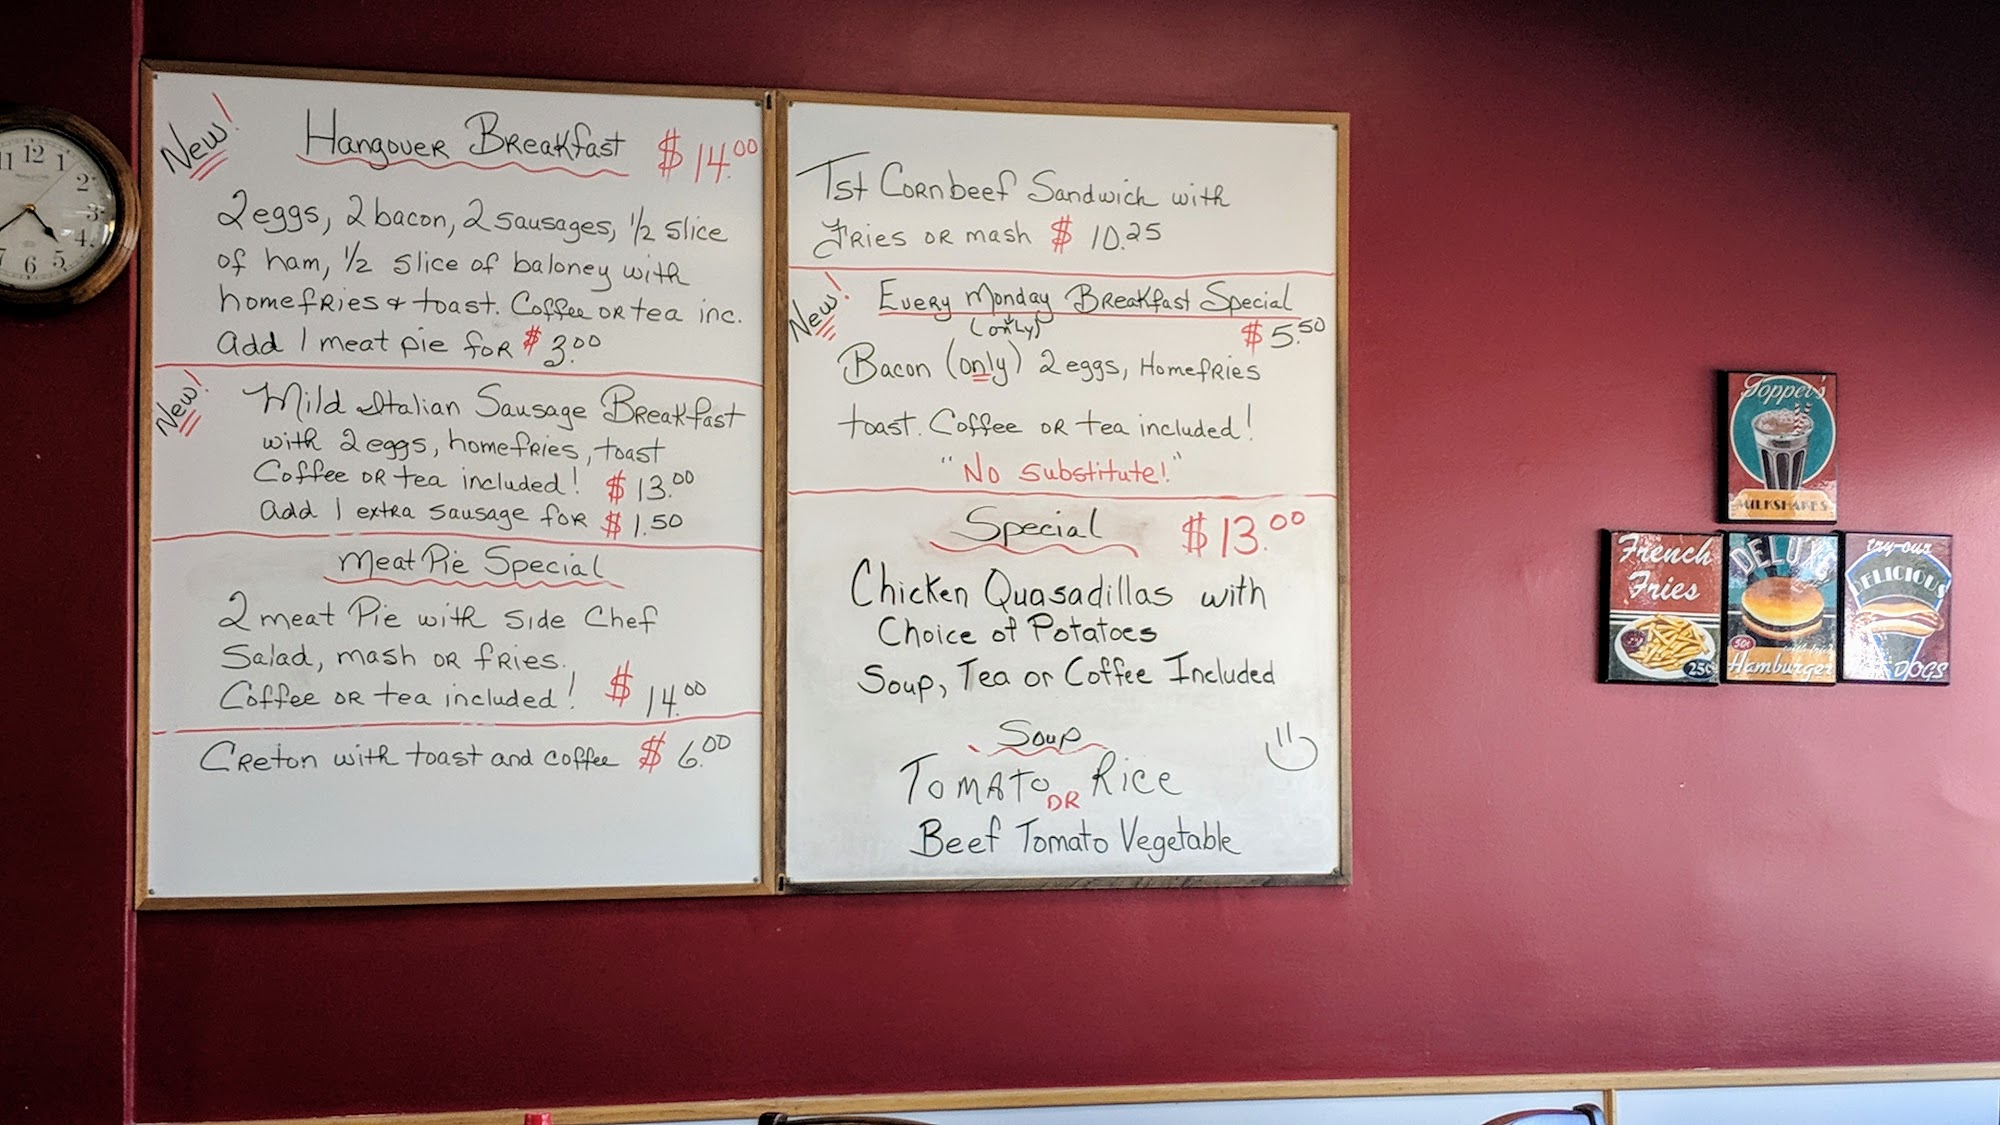 12
11
1
2
3
4
5
6
7
New!
Hangover Breakfast $14.00
2 eggs, 2 bacon, 2 sausages, 1/2 slice
of ham, 1/2 slice of baloney with
homefries & toast. Coffee or tea inc.
Add 1 meat pie for $3.00
New!
Mild Italian Sausage Breakfast
with 2 eggs, homefries, toast
Coffee or tea included! $13.00
Add 1 extra sausage for $1.50
Meat Pie Special
2 meat Pie with side Chef
Salad, mash or fries.
Coffee or tea included! $14.00
Creton with toast and coffee $6.00
Tst Cornbeef Sandwich with
Fries or mash $10.25
New!
Every Monday Breakfast Special
(only)
$5.50
Bacon (only) 2 eggs, Homefries
toast. Coffee or tea included!
"No substitute!"
Special $13.00
Chicken Quasadillas with
Choice of Potatoes
Soup, Tea or Coffee Included
Soup
Tomato Rice
OR
Beef Tomato Vegetable
Topper's
MILKSHAKES
French
Fries
25¢
DELUXE
50¢
Hamburger
try our
DELICIOUS
DOGS